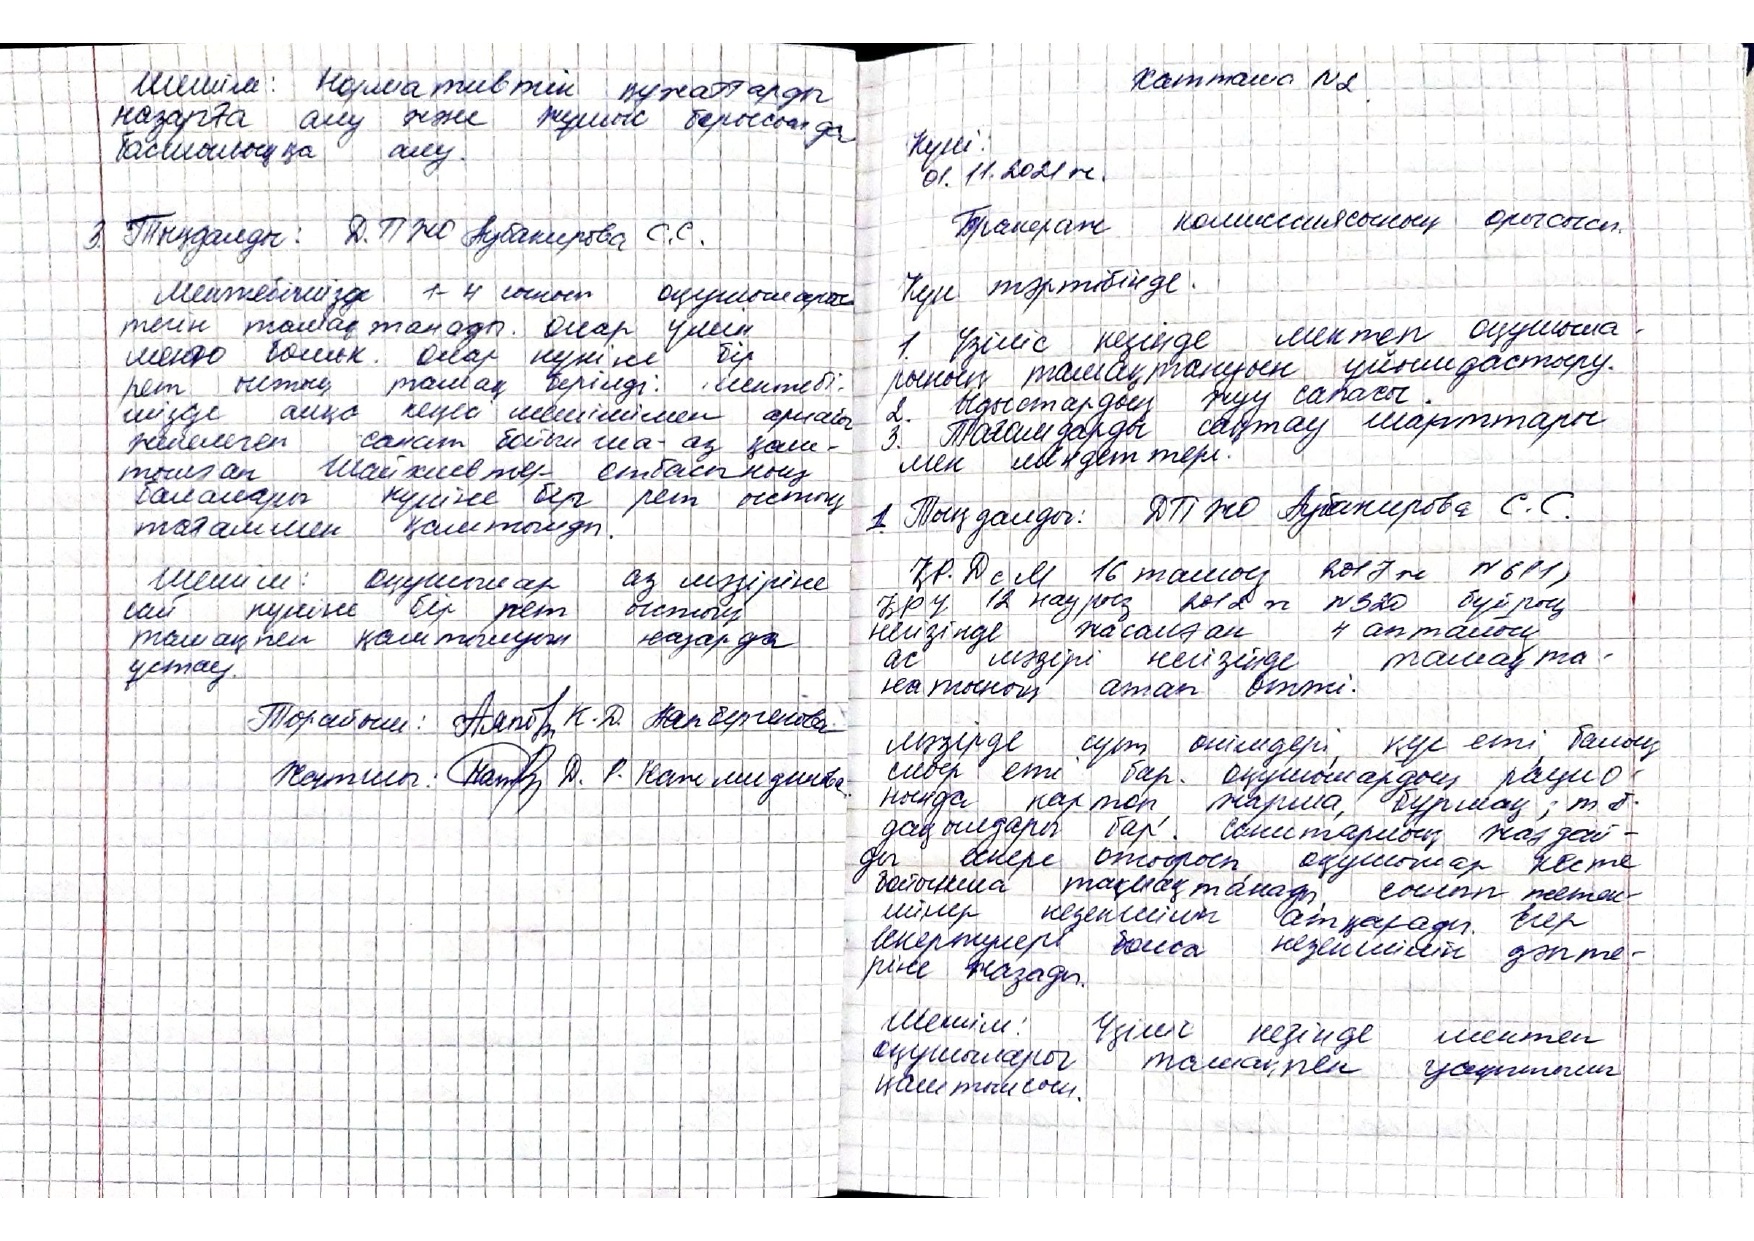 Шешім: Нормативтік құжаттарды
назарға алу және жұмыс барысында
басшылыққа алу.
3. Тыңдалды: Д.ТІЖО Аубакирова С.С.
Мектебімізде 1-4 сынып оқушылары
тегін тамақтанады. Олар үшін
меню бөлек. Олар күніне бір
рет ыстық тамақ берілді. Мектебі-
мізде алқа кеңесі шешімімен арнайы
жөнелген санат бойынша аз қам-
тылған Шайхиевтер отбасының
балалары күніне бір рет ыстық
тағаммен қамтылды.
Шешім: оқушылар ас мәзіріне
сай күніне бір рет ыстық
тамақпен қамтылуын назарда
ұстау.
Төрайым: К.Д. Напбергенова
Хатшы: Д.Р. Кажмидинова.
Хаттама N2.
Күні:
01.11.2021 ж.
Бракераж комиссиясының отырысы.
Күн тәртібінде.
1. Үзіліс кезінде мектеп оқушыла-
рының тамақтануын ұйымдастыру.
2. Ыдыстардың жуу сапасы.
3. Тағамдарды сақтау шарттары
мен міндеттері.
1. Тыңдалды: ДТІЖО Аубакирова С.С.
ҚР.ДсМ 16 тамыз 2017 ж N611,
ҚРҮ 12 наурыз 2012 ж N320 бұйрық
негізінде жасалған 4 апталық
ас мәзірі негізінде тамақта-
натынын атап өтті.
Мәзірде сүт өнімдері, құс еті, балық
сиыр еті бар. Оқушылардың рацио-
нында картоп, жарма, бұршақ, т.б.
дақылдары бар. Санитарлық жағдай-
ды ескере отырып оқушылар кесте
бойынша тамақтанады, сынып жетек-
шілер кезекшілік атқарады. Егер
ескертулері болса кезекшілік дәпте-
ріне жазады.
Шешім: Үзіліс кезінде мектеп
оқушылары тамақпен
қамтылсын.